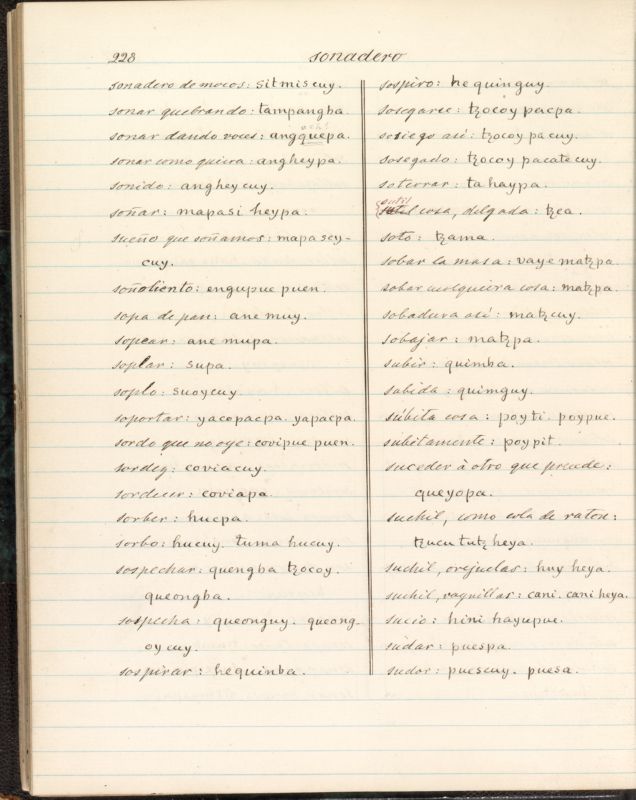 228
sonadero
sonadero de mocos: sitmiscuy.
sonar quebrando: tampangba
sonar dando voces: angquepa.
sonar como quiera: angheypa.
sonido: angheycuy.
soñar: mapasi heypa.
sueño que soñamos: mapasey-
cuy.
soñoliento: engupue puen.
sopa de pan: ane muy.
sopear: ane mupa.
soplar: supa.
soplo: suoycuy.
soportar: yacopacpa. yapacpa.
sordo que no oye: covipue puen.
sordez: coviacuy.
sordecer: coviapa.
sorber: hucpa.
sorbo: hucuy. tuma hucuy.
sospechar: quengba tzocoy.
queongba.
sospecha: queonguy. queong-
oycuy.
sospirar: hequinba.
sospiro: hequinguy.
sosegarse: tzocoy pacpa.
sosiego así: tzocoy pacuy.
sosegado: tzocoy pacatecuy.
soterrar: tahaypa.
sutil cosa, delgada: tzea.
soto: tzama.
sobar la masa: vaye matzpa.
sobar cualquiera cosa: matzpa.
sobadura así: matzcuy.
sobajar: matzpa.
subir: quimba.
subida: quimguy.
súbita cosa: poyti. poypue.
subitamente: poypit.
suceder à otro que precede:
queyopa.
suchil, como cola de raton:
tzucu tutz heya.
suchil, orejuelas: huy heya.
suchil, vaquillas: cani. cani heya.
sucio: hini hayupue.
sudar: puespa.
sudor: puescuy. puesa.